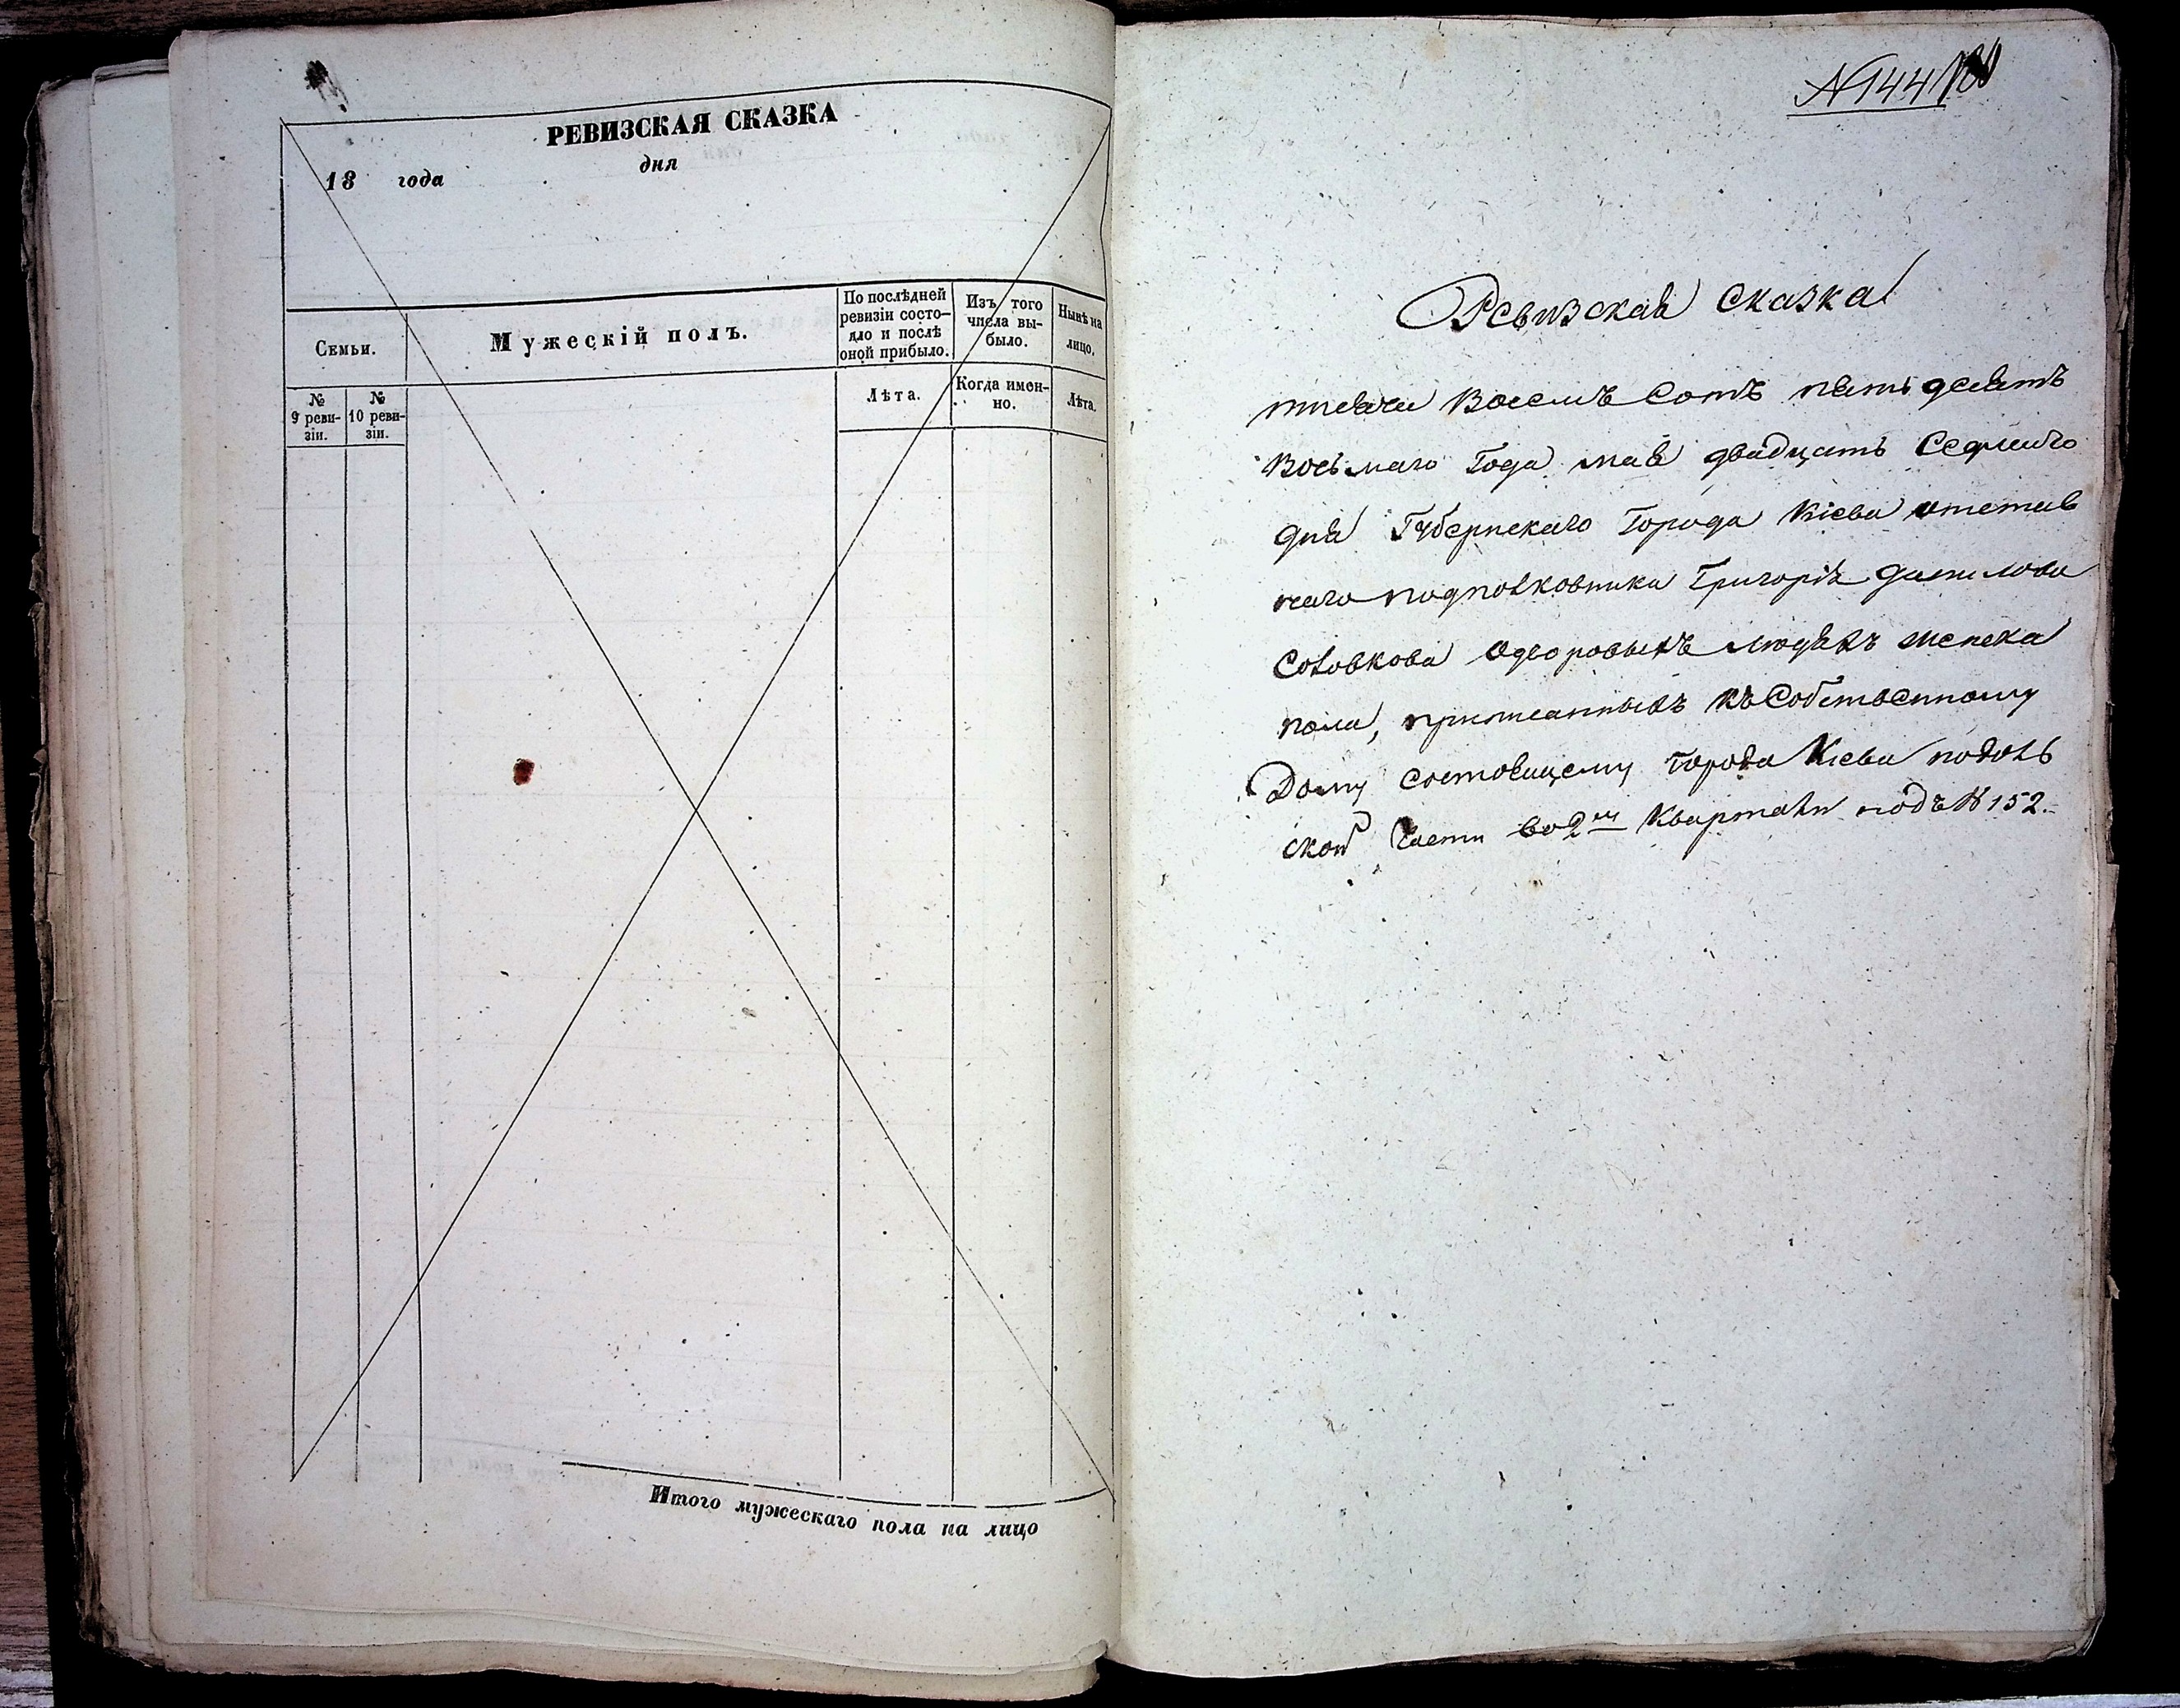 РЕВИЗСКАЯ СКАЗКА
18 года дня
Семьи.
Мужескій полъ.
По послѣдней
ревизіи состо-
яло и послѣ
оной прибыло.
Изъ того
числа вы-
было.
Нынѣ на
лицо.
№
9 реви-
зіи.
№
10 реви-
зіи.
Лѣта.
Когда имен-
но.
Лѣта.
Итого мужескаго пола на лицо
N 144
Ревизская сказка
тысяча Восемъ Сотъ пятьдесятъ
Восьмаго Года мая двадцать Седмаго
дня Губернскаго Города Кіева отстав
наго подполковника Григорія Данилова
Соловкова одворовыхъ людяхъ женска
пола, приписанныхъ къ Собственному
Дому состоящему города Кіева подоль
ской Части во 2мъ Кварталѣ подъ N 152.